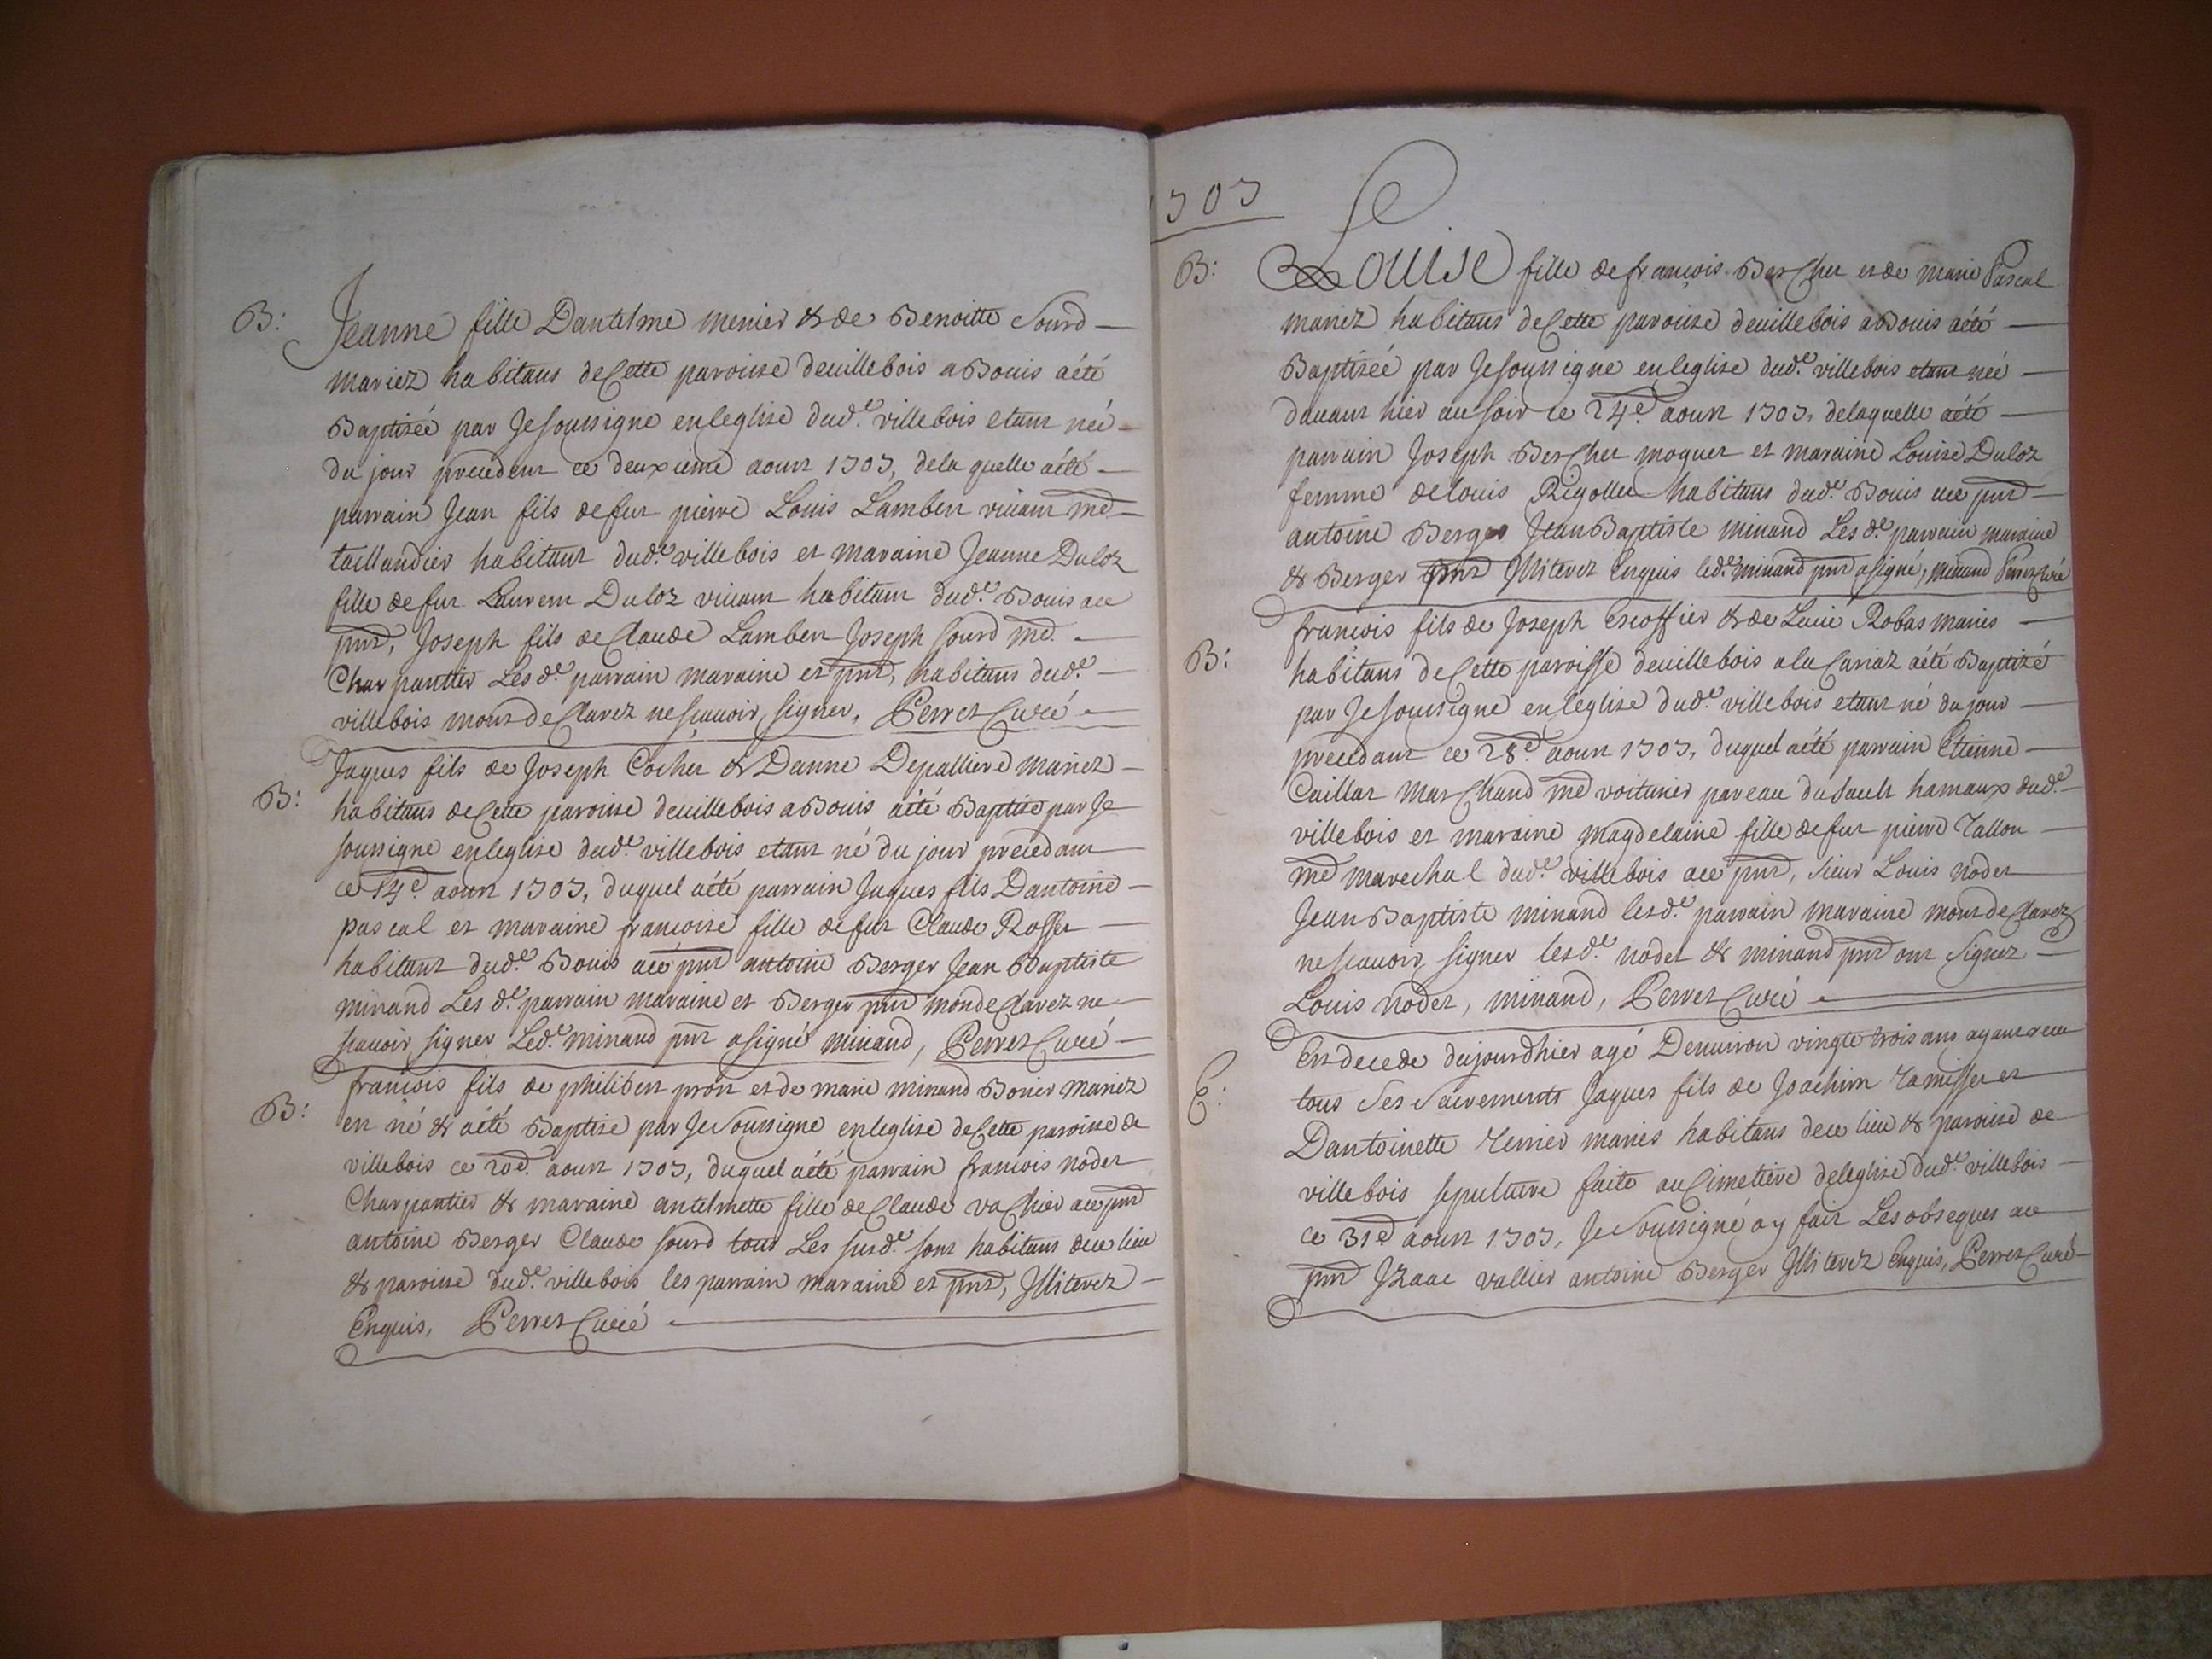 B: Jeanne fille Dantelme menier & de Benoitte Sourd
mariez habitans de Cette paroisse de villebois a Bouis a été
Baptizée par Je soussigne en leglise dud.e villebois etant née
du jour precedent ce deuxieme aoust 1707, dela quelle a été
parrain Jean fils de fut pierre Louis Lambert vivant md
taillandier habitant dud.e villebois et maraine Jeanne Duloz
fille de fut Laurent Duloz vivant habitant dud.e Bouis ace
pnt, Joseph fils de Claude Lambert Joseph Sourd md
Charpantier Les d.e parrain maraine et pnt, habitans dud.e
villebois mont declarez ne scauoir signer, Perret Curé
B: Jaques fils de Joseph Cocher & Danne Depalliere mariez
habitans de Cette paroisse de villebois a Bouis a été Baptise par Je
soussigne en leglise dud.e villebois etant né du jour precedant
ce 14e aoust 1707, duquel a été parrain Jaques fils Dantoine
pascal et maraine francoise fille de fut Claude Rosset
habitant dud.e Bouis ace pnt antoine Berger Jean Baptiste
minand Les d.e parrain maraine et Berger pnt mon declarez ne
scauoir signer Led.e minand pnt a signé minand, Perret Curé
B: francois fils de philibert pron et de marie minand Bonier mariez
est né & a été Baptise par Je Soussigne en leglise de Cette paroisse de
villebois ce 20e aoust 1707, duquel a été parrain francois nodet
Charpantier & maraine antelmette fille de Claude vachier ace pnt
antoine Berger Claude Sourd tous Les susd.e sont habitans de ce lieu
& paroisse dud.e villebois les parrain maraine et pnt, Illiterez
Enquis, Perret Curé
1707
B: Louise fille de francois BerCher et de marie Pascal
mariez habitans de Cette paroisse de villebois a Bouis a été
Baptizée par Je soussigne en leglise dud.e villebois etant née
dauant hier au soir ce 24e aoust 1707, de laquelle a été
parrain Joseph BerCher moquet et maraine Louise Duloz
femme de louis Rigollet habitans dud.e Bouis ace pnt
antoine Berger Jean Baptiste minand Les d.e parrain maraine
& Berger pnt Illiterez Enquis led.e minand pnt a signé, minand Perret Curé
B: francois fils de Joseph Escoffier & de Lucie Robas maries
habitans de Cette paroisse de villebois a la Cariaz a été Baptizé
par Je soussigné en leglise dud.e villebois etant né du jour
precedant ce 28e aoust 1707, duquel a été parrain Etienne
Caillat marChand md voiturier par eau du Sault hamaux dud.e
villebois et maraine magdelaine fille de fut pierre Tallon
md marechal dud.e villebois ace pnt, sieur Louis nodet
Jean Baptiste minand lesd.e parrain maraine mont declarez
ne scauoir signer lesd.e nodet & minand pnt ont signez
Louis nodet, minand, Perret Curé
E: Est decede du jourdhier agé Denuiron vingte trois ans ayant receu
tous Ses Sacrements Jaques fils de Joachim Tamisset et
Dantoinette Terrier mariés habitans de ce lieu & paroisse de
villebois sepulture faite au Cimetiere de leglise dud.e villebois
ce 31e aoust 1707, Je Soussigné ay fait Les obseques ace
pnt Izaac vallier antoine Berger Illiterez Enquis, Perret Curé